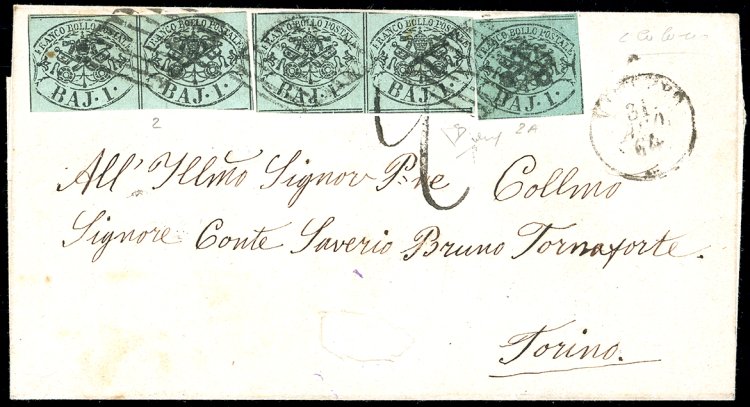 FRANCO BOLLO POSTALE FRANCO BOLLO POSTALE FRANCO BOLLO POSTALE FRANCO BOLLO POSTALE
BAJ. 1. BAJ. 1. BAJ. 1. BAJ. 1. BAJ. 1.
2
2A
64
All' Illmo Signor Pne Collmo
Signore Conte Saverio Bruno Tornaforte.
Torino.